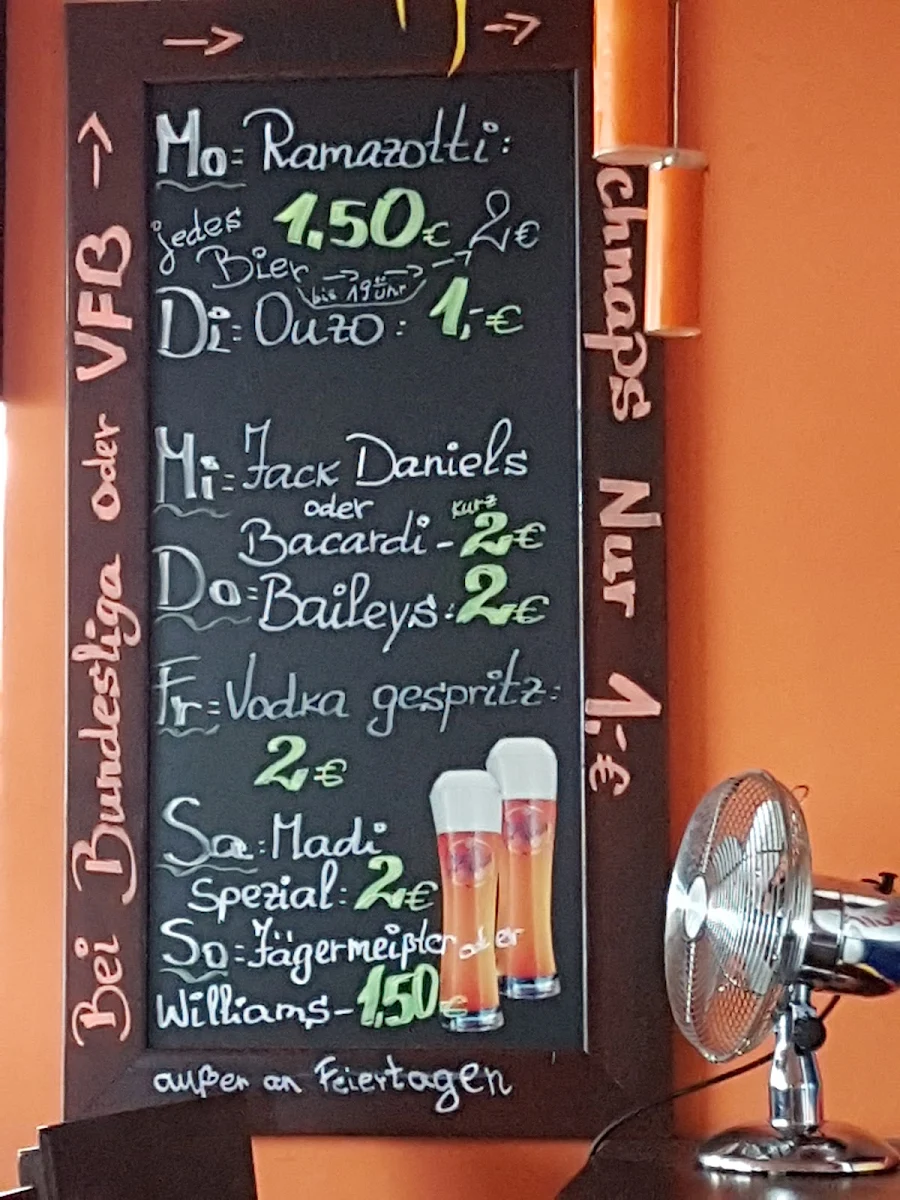 Mo= Ramazotti:
1.50€ 2€
jedes
Bier → → →
bis 19⁰⁰ Uhr
Di= Ouzo: 1,-€
Mi= Jack Daniels
oder
kurz
Bacardi - 2€
Do= Baileys: 2€
Fr= Vodka gespritz:
2€
Sa: Madi
Spezial: 2€
So= Jägermeißter oder
Williams - 1,50€
außer an Feiertagen
Bei Bundesliga oder VFB →
→ →
chnaps Nur 1,-€